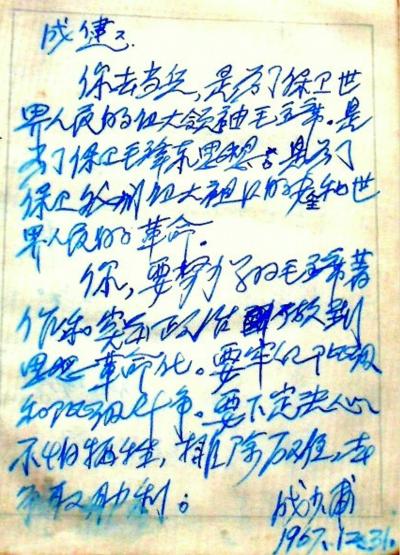 成健:
你去当兵,是为了保卫世
界人民的伟大领袖毛主席。是
为了保卫毛泽东思想。是为了
保卫我们伟大祖国的 和世
界人民的革命。
你,要努力学习毛主席著
作和 政治 做到
思想革命化。要牢记阶级
和阶级斗争。要下定决心
不怕牺牲,排除万难,去
争取胜利。
成 甫
1967.12.31.